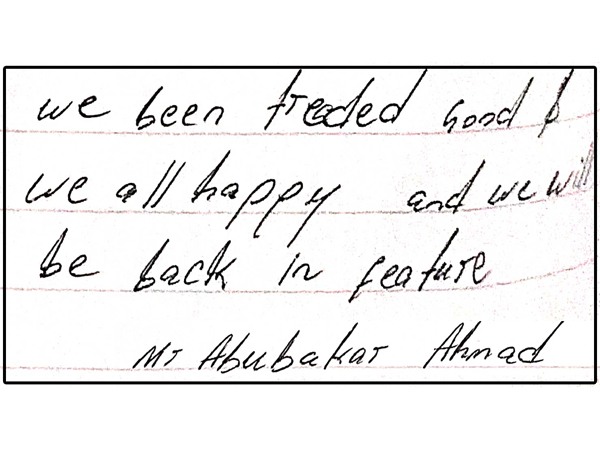 we been treaded good &
we all happy and we will
be back in feature
Mr Abubakar Ahmad